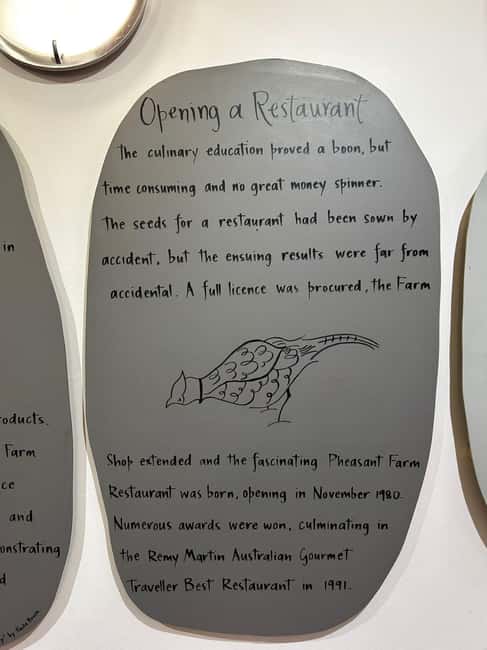 Opening a Restaurant
The culinary education proved a boon, but
time consuming and no great money spinner.
The seeds for a restaurant had been sown by
accident, but the ensuing results were far from
accidental. A full licence was procured, the Farm
Shop extended and the fascinating Pheasant Farm
Restaurant was born, opening in November 1980.
Numerous awards were won, culminating in
the Remy Martin Australian Gourmet
Traveller Best Restaurant in 1991.
in
roducts.
Farm
ce
and
onstrating
d